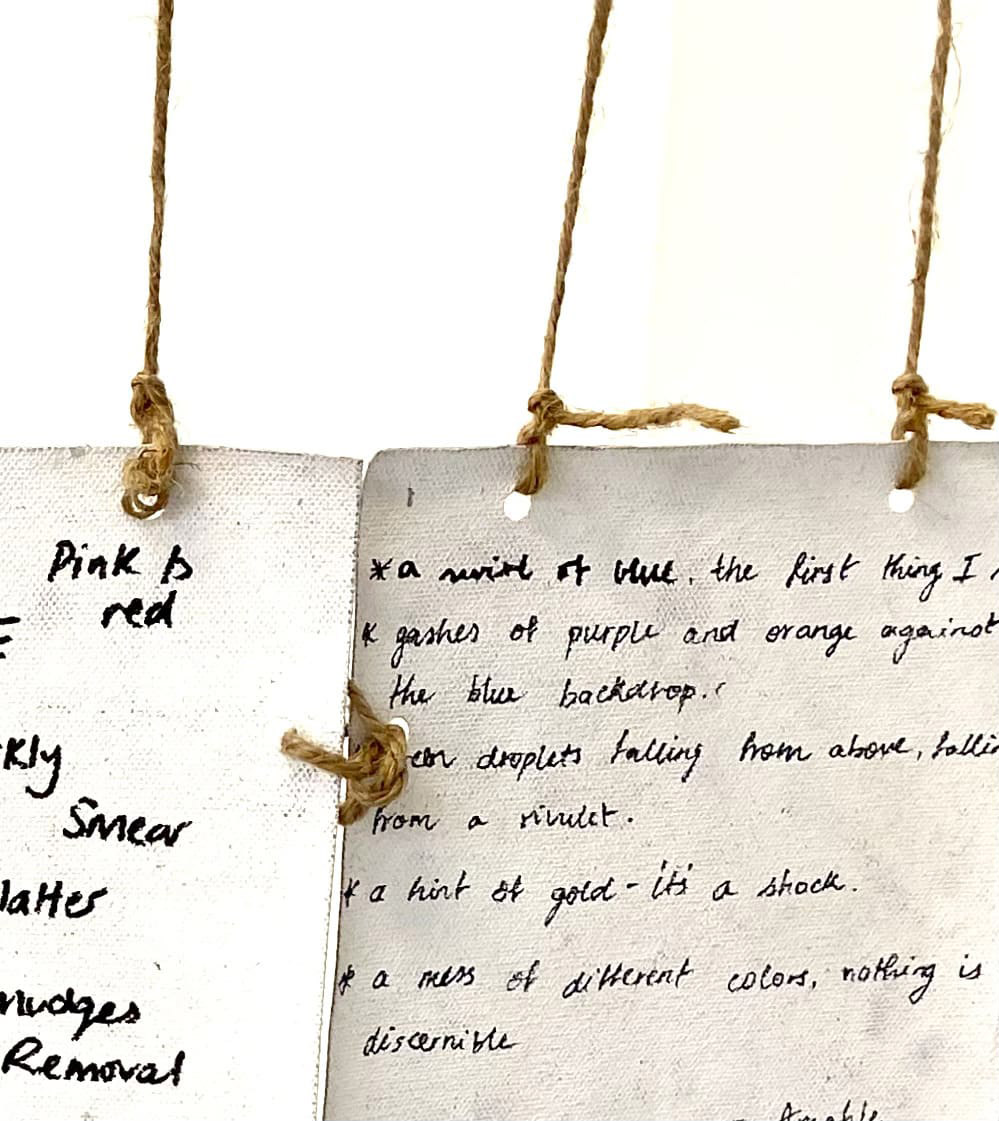 Pink &
red
kly
Smear
latter
mudges
Removal
* a swirl of blue, the first thing I
* gashes of purple and orange against
the blue backdrop.
droplets falling from above, fallin
from a rivulet.
* a hint of gold - it's a shock.
* a mess of different colors, nothing is
discernible